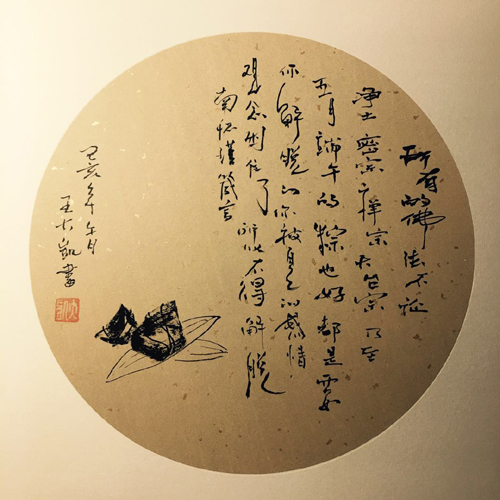 所有的佛法不论
净土密宗禅宗天台宗乃至
五月端午的粽也好都是要
你解脱的你被自己的感情
观念住了所以不得解脱
南怀瑾箴言
己亥年午月
王大凯书